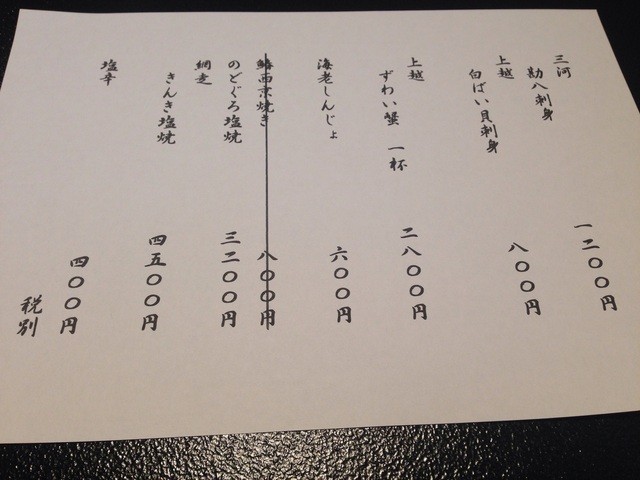 三河
勘八刺身 一二〇〇円
上越
白ばい貝刺身 八〇〇円
上越
ずわい蟹 一杯 二八〇〇円
海老しんじょ 六〇〇円
西京焼き 八〇〇円
のどぐろ塩焼 三二〇〇円
網走
きんき塩焼 四五〇〇円
塩辛 四〇〇円
税別